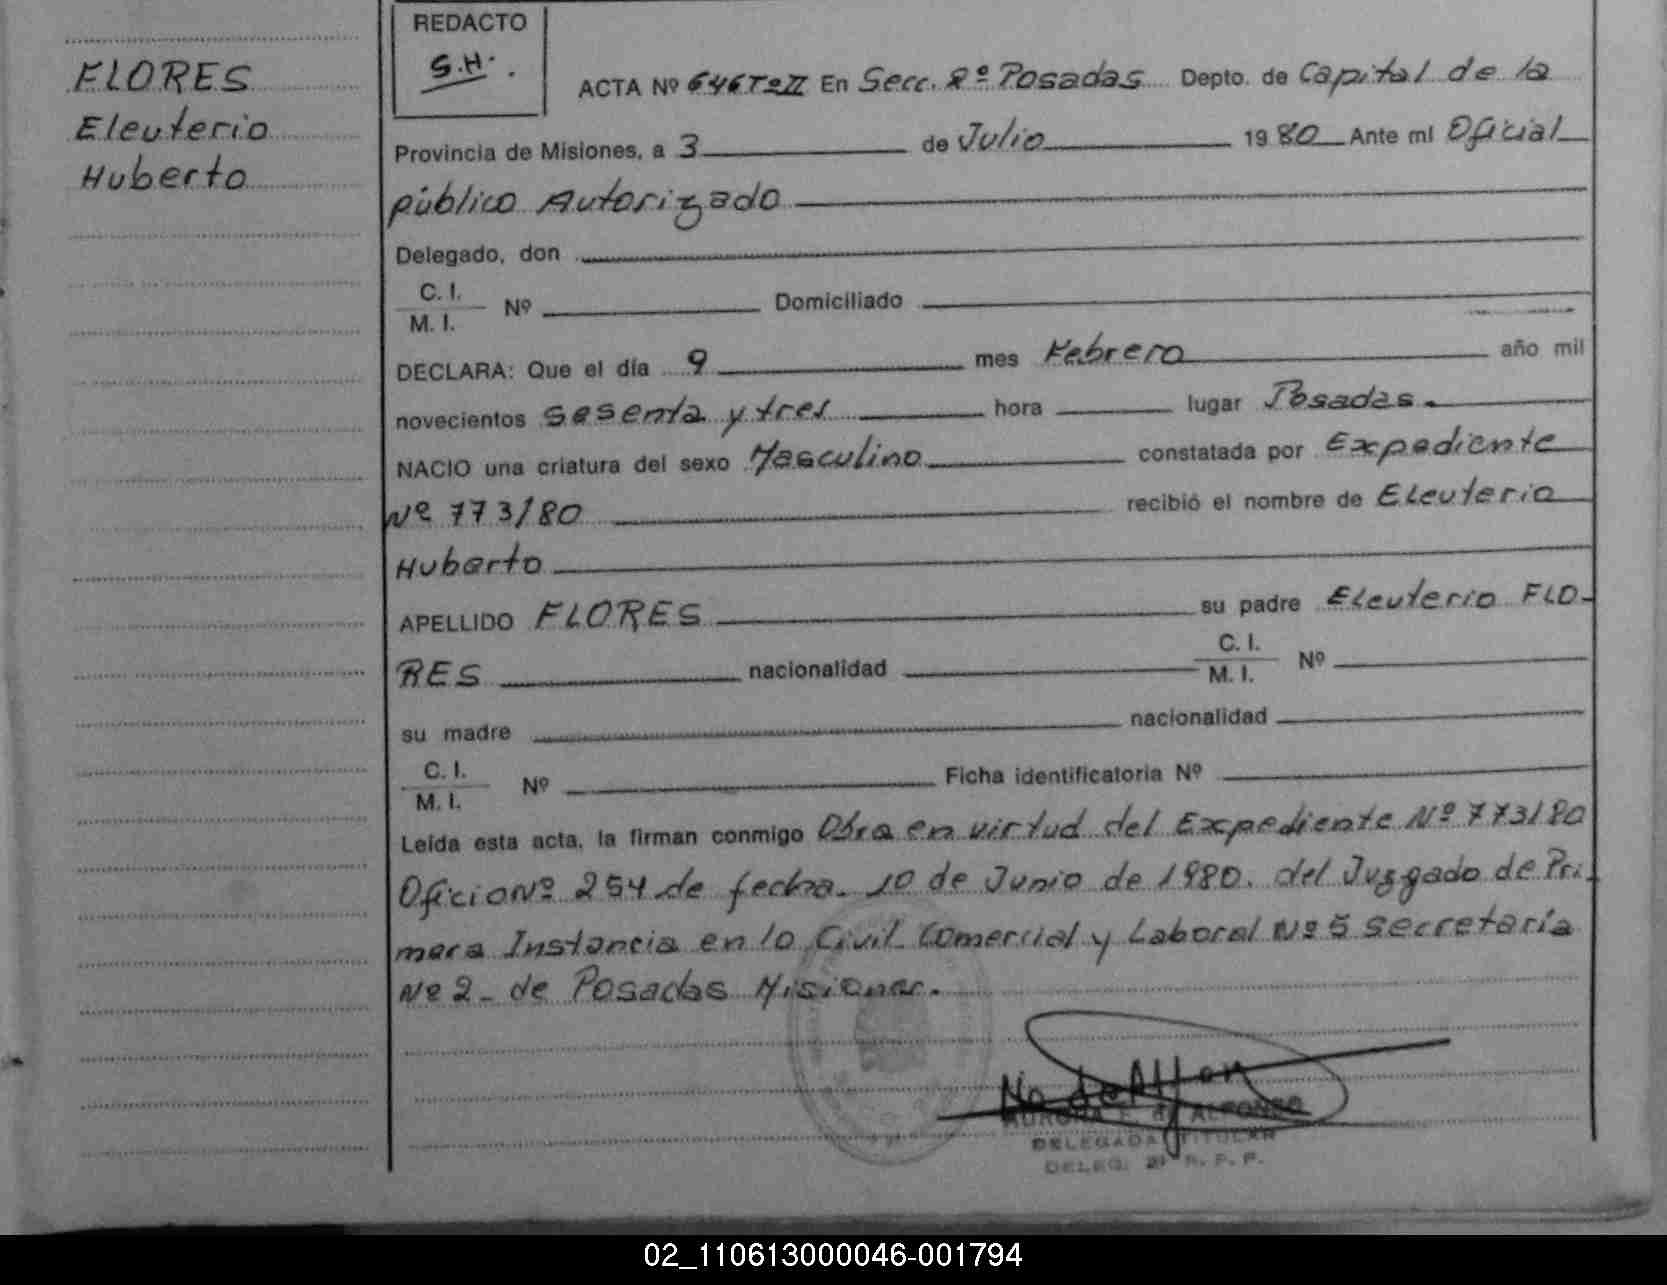 FLORES
Eleuterio
Huberto
REDACTO
S.H.
ACTA Nº 646 Tº II En Secc. 2º Posadas Depto. de Capital de la
Provincia de Misiones, a 3 de Julio 1980 Ante mí Oficial
público Autorizado
Delegado, don
C. I.
M. I. Nº Domiciliado
DECLARA: Que el día 9 mes Febrero año mil
novecientos sesenta y tres hora lugar Posadas.
NACIO una criatura del sexo Masculino constatada por Expediente
Nº 773/80 recibió el nombre de Eleuterio
Huberto
APELLIDO FLORES su padre Eleuterio FLO-
RES nacionalidad C. I.
M. I. Nº
su madre nacionalidad
C. I.
M. I. Nº Ficha identificatoria Nº
Leída esta acta, la firman conmigo Obra en virtud del Expediente Nº 773/80
Oficio Nº 254 de fecha 10 de Junio de 1980. del Juzgado de Pri-
mera Instancia en lo Civil Comercial y Laboral Nº 5 secretaría
Nº 2 - de Posadas Misiones.
ALFONSO
DELEGADA TITULAR
DELEG.
02_110613000046-001794